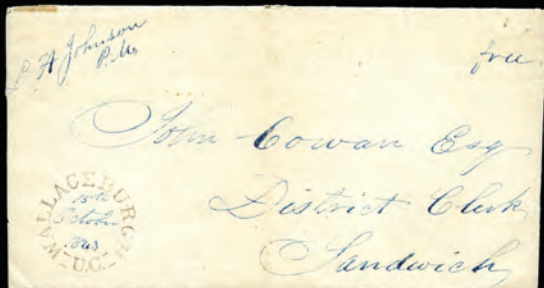 H Johnson
P.M.
free
John Cowan Esq
District Clerk
Sandwich
WALLACEBURGH
15th
October
U.C.